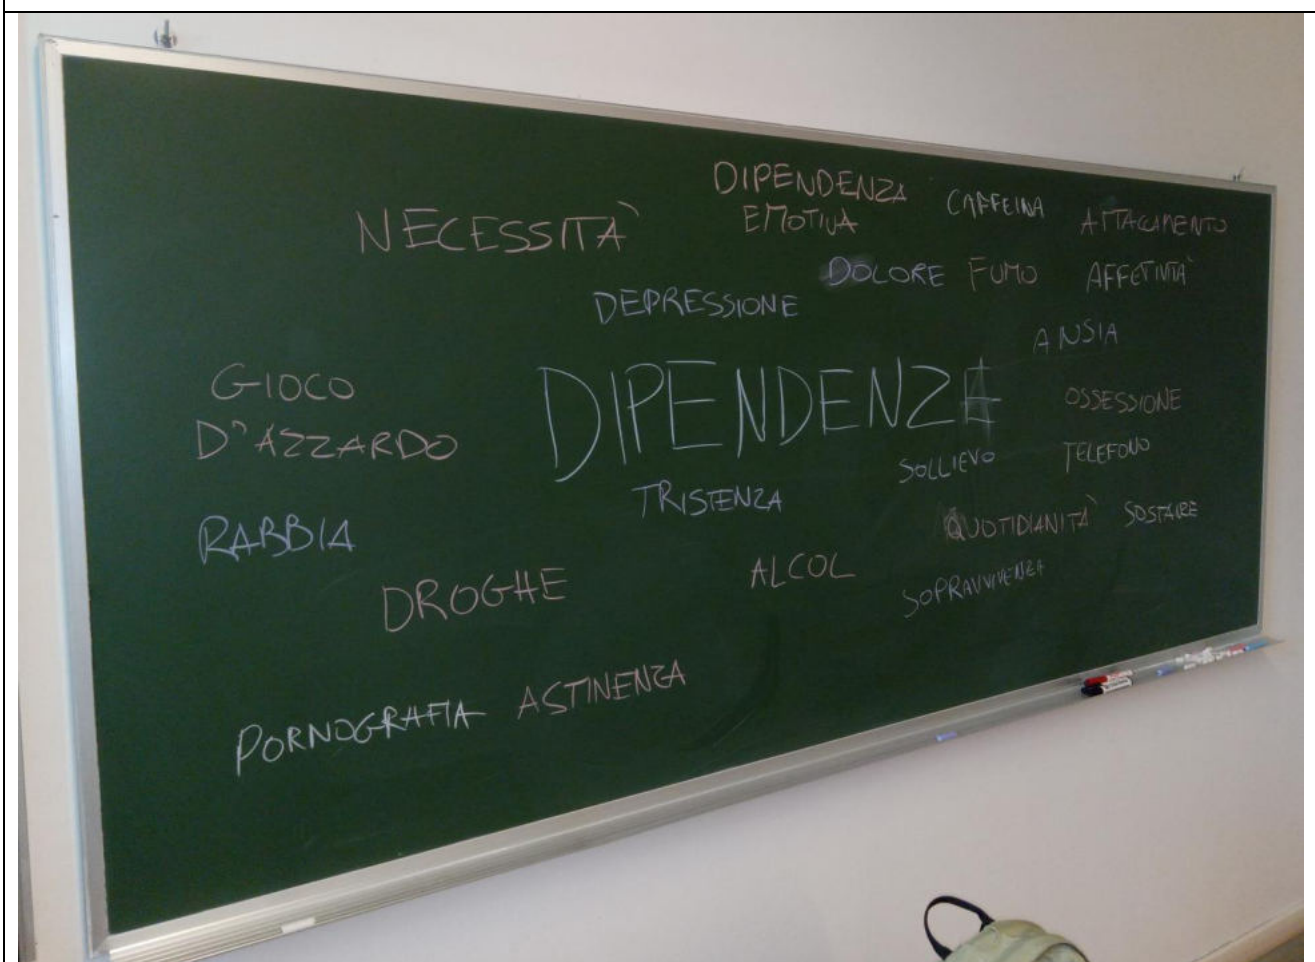 DIPENDENZA
EMOTIVA
CAFFEINA
ATTACCAMENTO
NECESSITÀ
DOLORE
FUMO
AFFETIVITÀ
DEPRESSIONE
ANSIA
GIOCO
D'AZZARDO
DIPENDENZE
OSSESSIONE
SOLLIEVO
TELEFONO
TRISTENZA
RABBIA
QUOTIDIANITÀ
DROGHE
ALCOL
SOPRAVVIVENZA
PORNOGRAFIA
ASTINENZA